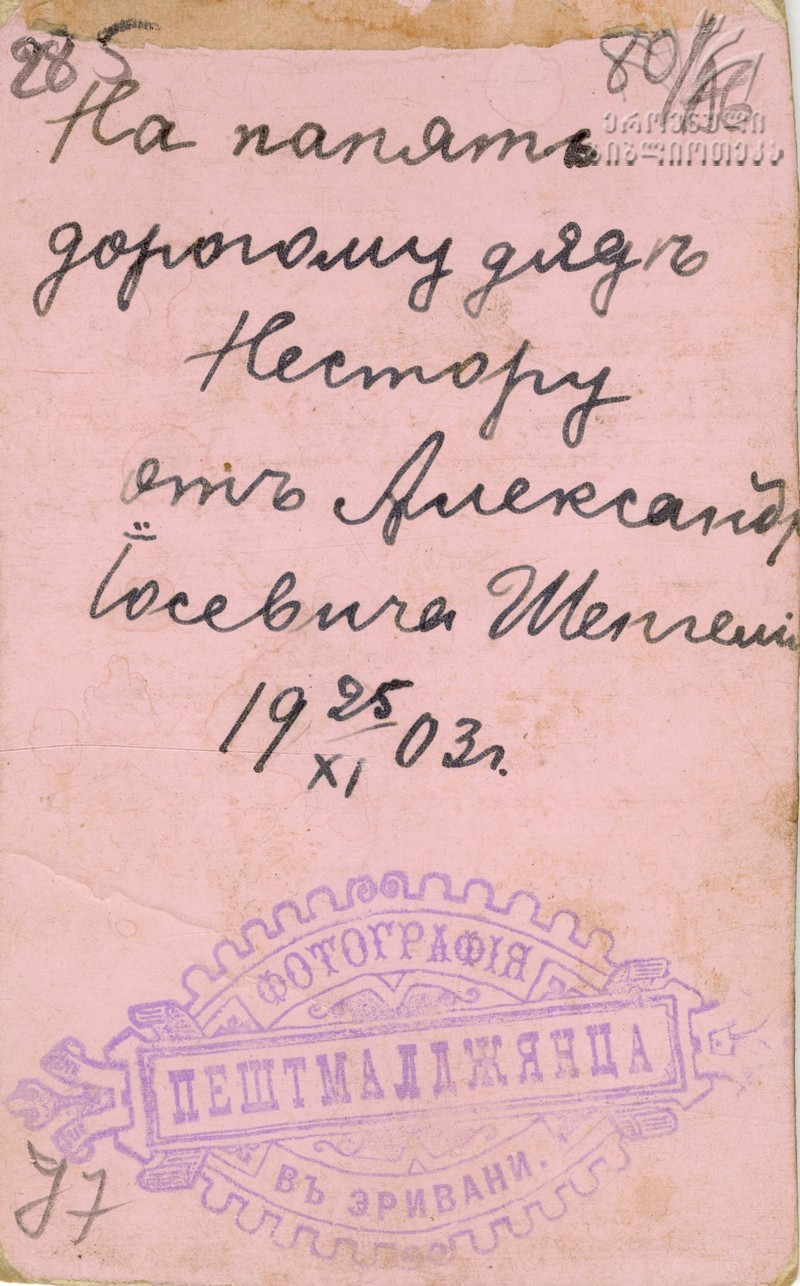 285
80/
ეროვნული
ბიბლიოთეკა
На память
дорогому дядѣ
Нестору
отъ Александр
Іосевича Шенгелі
19 25/XI 03 г.
ФОТОГРАФІЯ
ПЕШТМАЛДЖЯНЦА
ВЪ ЭРИВАНИ.